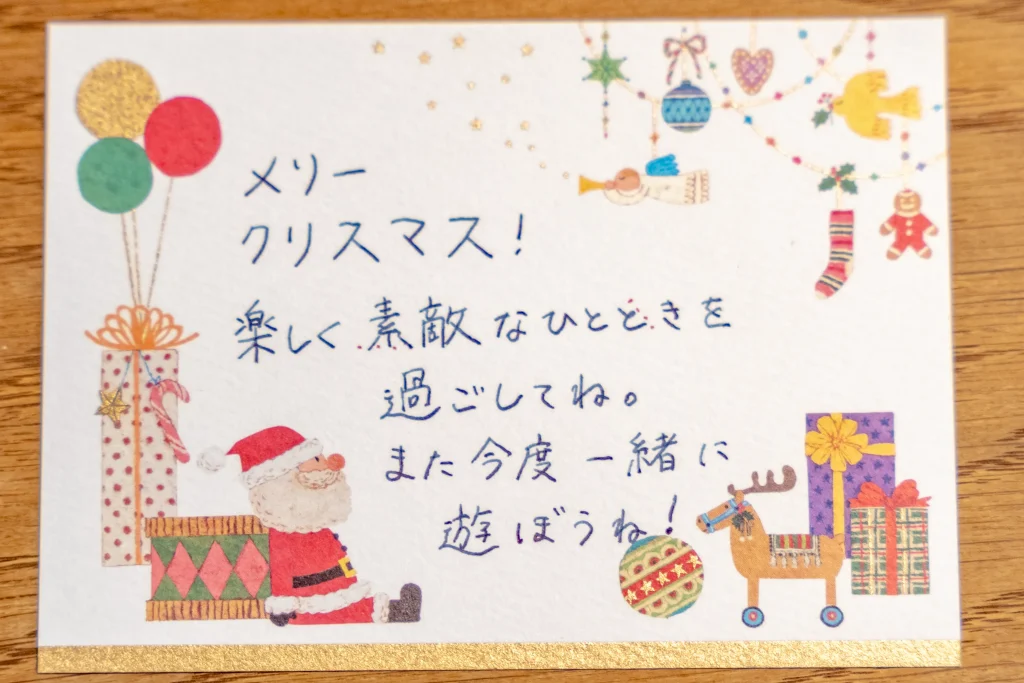 メリー
クリスマス!
楽しく素敵なひとときを
過ごしてね。
また今度一緒に
遊ぼうね!